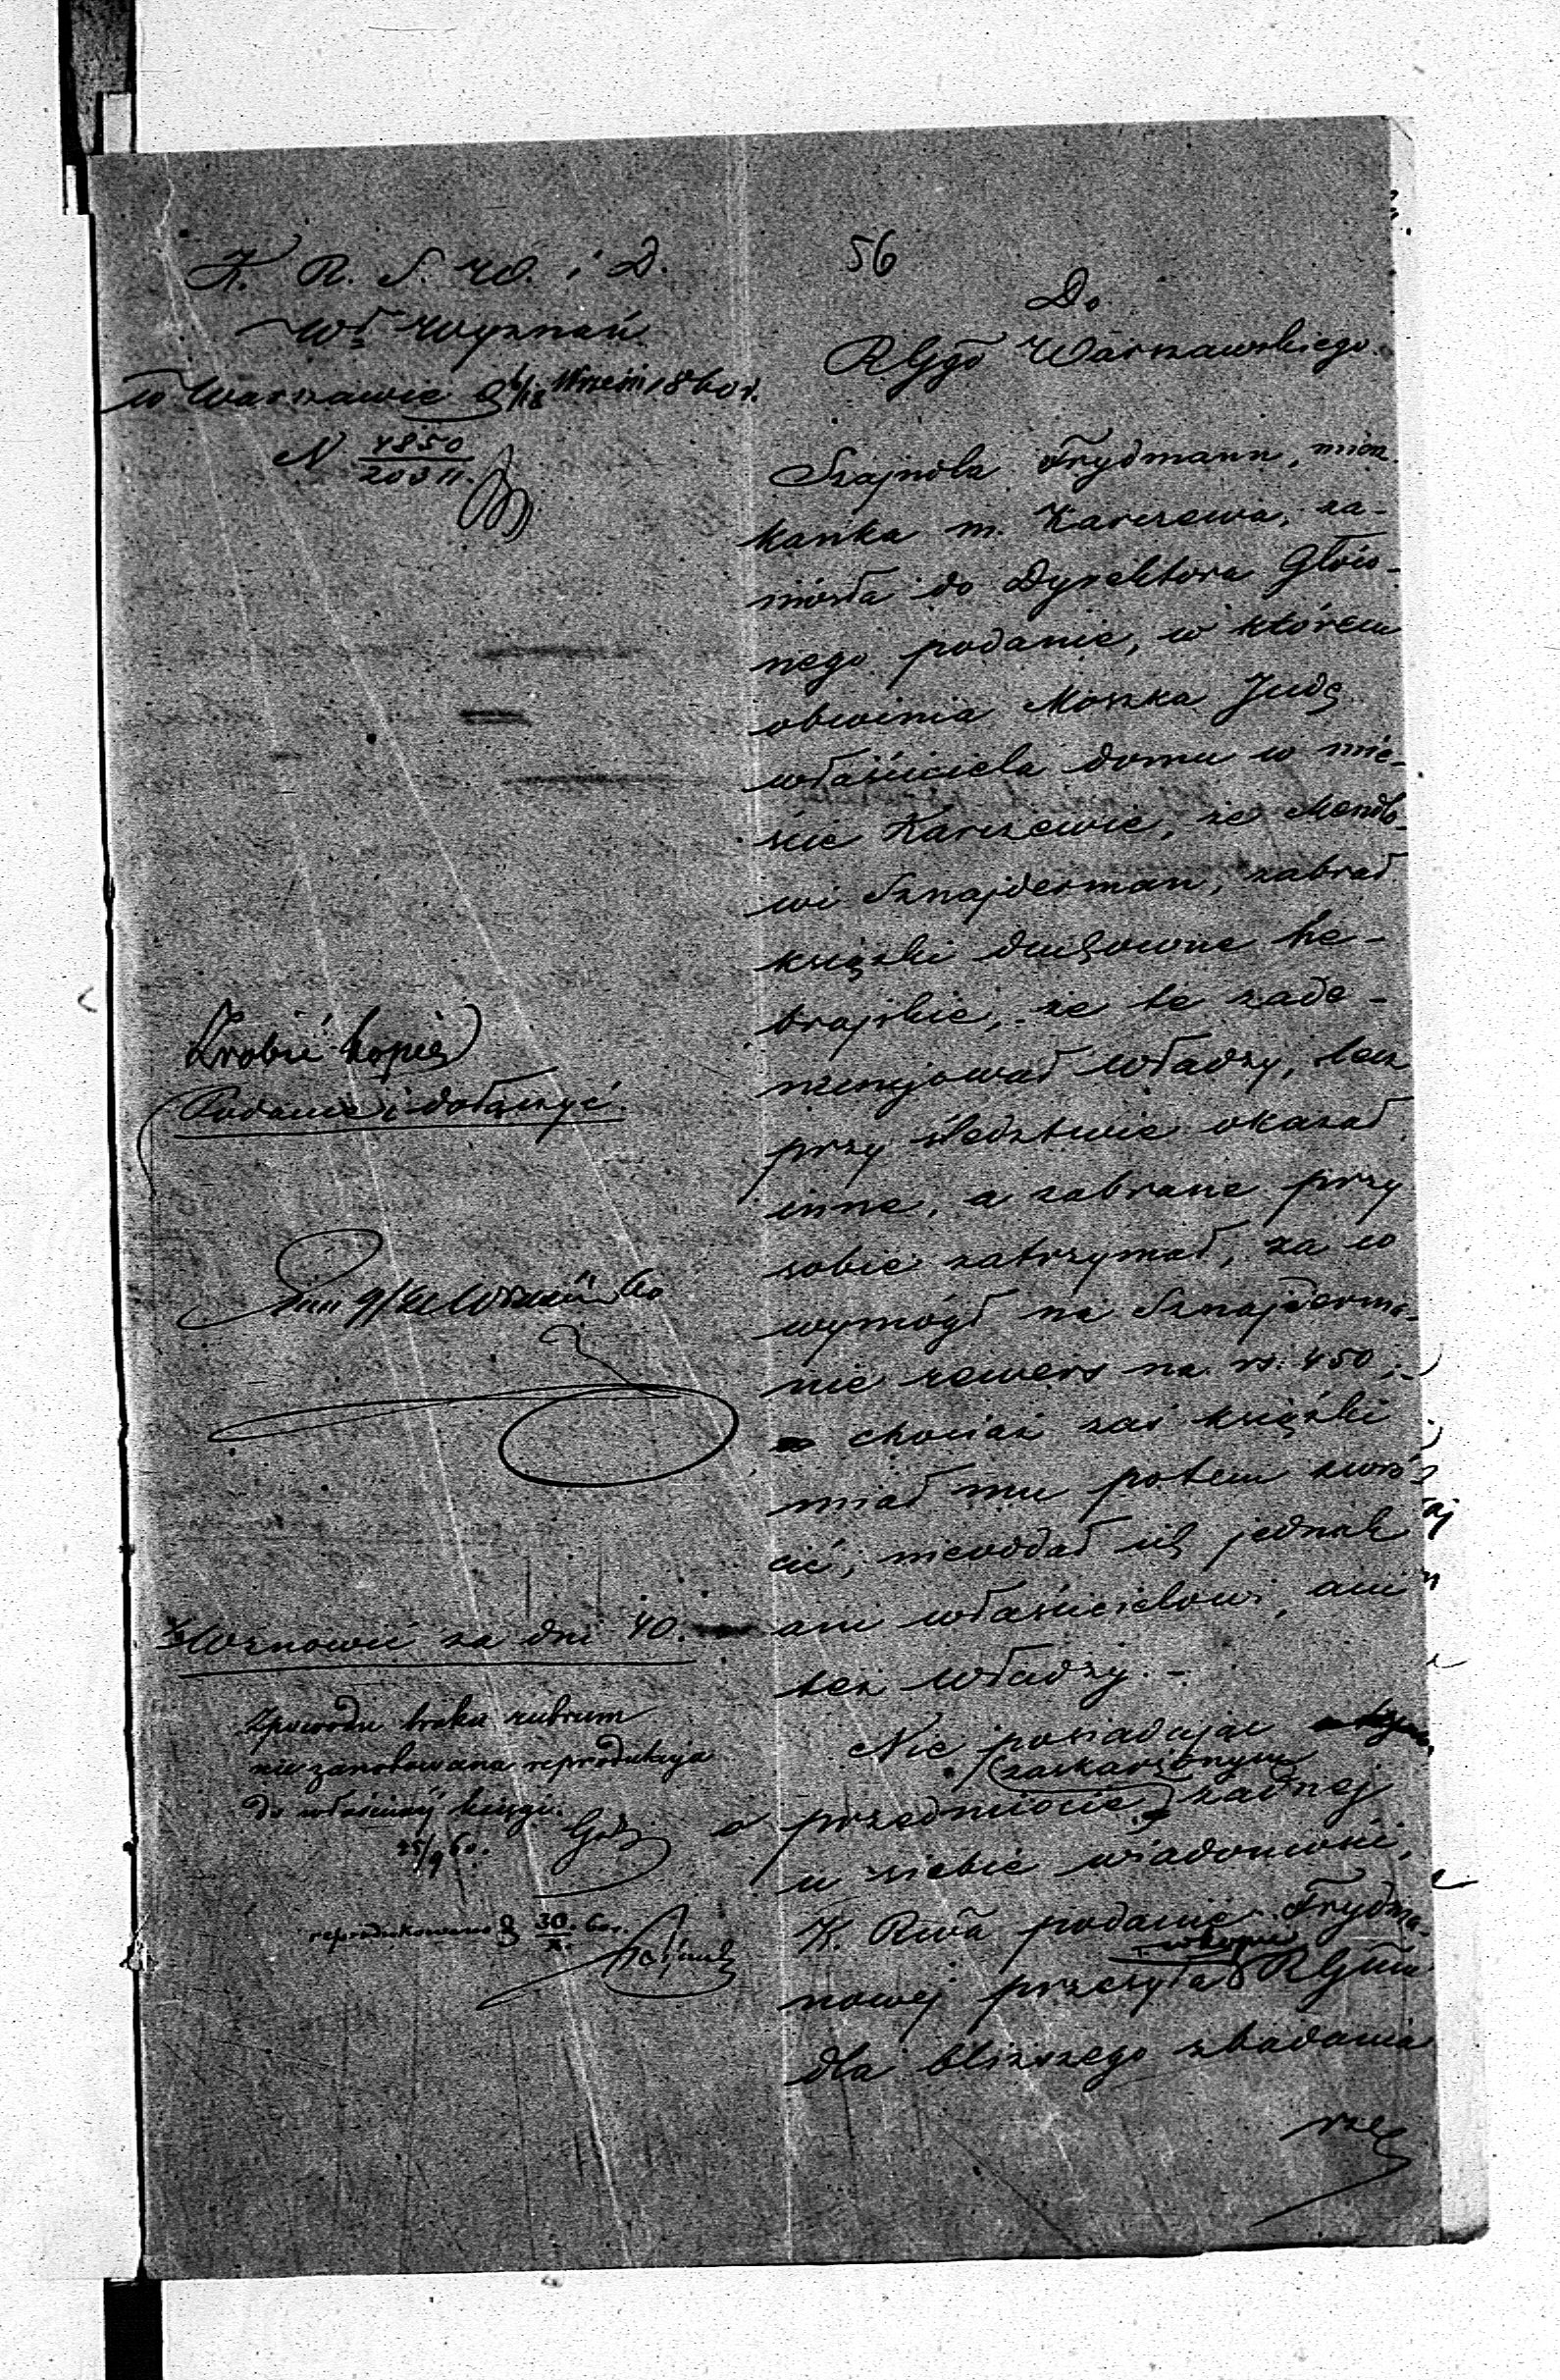 K. R. S. W. i D.
Wł Wyznań
w Warszawie d 6/18 Wrześn 1860 r.
N 4850
20311.
56
Do
RGgo Warszawskiego.
Szajndla Frydmann, miesz
kanka m. Karczewa, za-
niosła do Dyrektora Głów-
nego podanie, w którem
obwinia Moszka Judę
właściciela domu w mie-
ście Karczewie, że Mendlo-
wi Sznajderman, zabrał
książki duchowne he-
brajskie, że te zade-
nuncjował władzy, lecz
przy śledztwie okazał
inne, a zabrane przy
sobie zatrzymał, za co
wymógł na Sznajderma-
nie rewers na rs: 450;-
chociaż zaś książki
miał mu potem zwró-
cić, nieoddał ich jednak
ani właścicielowi, ani
też władzy.-
Nie posiadając
zaskarżonym
o przedmiocie żadnej
u siebie wiadomości,
K. Rwa podanie Frydma-
w kopii
nowej przesyła RGmu
dla bliższego zbadania
rze
Zrobić kopię
Podania i dołączyć.
Wznowić za dni 40.
Zpowodu braku rubrum
nie zanotowana reprodukcja
do właściwej księgi.
25/9 60.
reprodukowano d 30/X. 60 r.